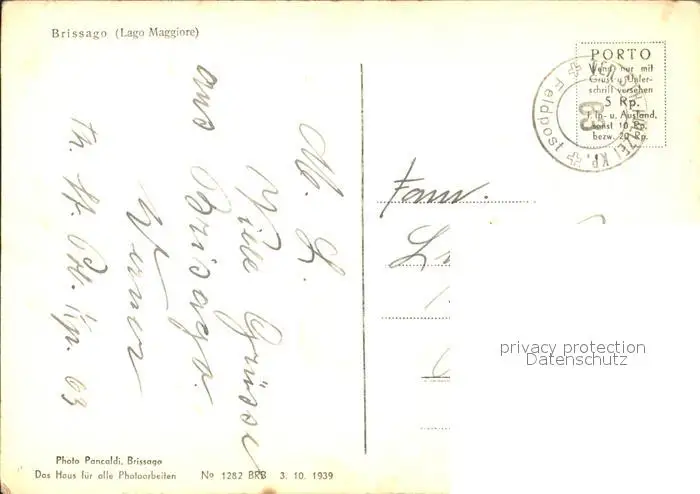 Brissago (Lago Maggiore)
PORTO
Wenn nur mit
Gruss u. Unter-
schrift versehen
5 Rp.
i. In- u. Ausland,
sonst 10 Rp.
bezw. 20 Rp.
Feldpost
63
KP.
M. L.
Viele Grüsse
aus Brisago.
Werner
Kp. 63
Fam.
privacy protection
Datenschutz
Photo Pancaldi, Brissago
Das Haus für alle Photoarbeiten
No 1282 BRB 3. 10. 1939